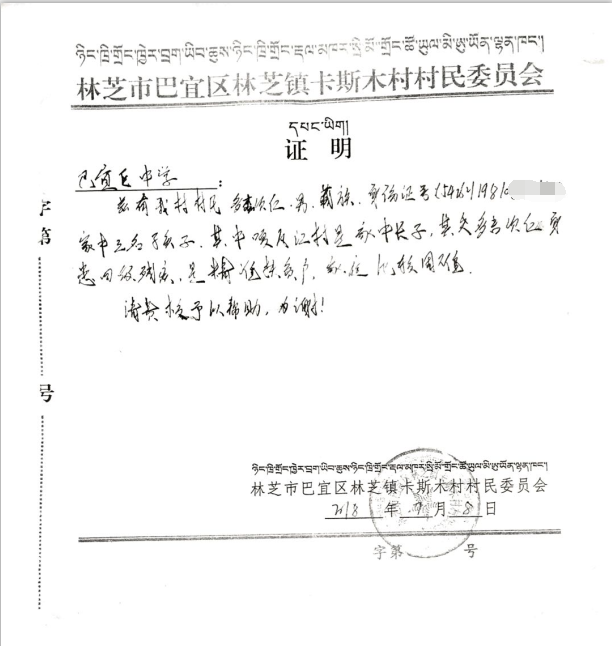 ཉིང་ཁྲི་གྲོང་ཁྱེར་བྲག་ཡིབ་ཆུས་ཉིང་ཁྲི་གྲོང་རྡལ་མཁར་སི་མོ་གྲོང་ཚོ་ཡུལ་མི་ཨུ་ཡོན་ལྷན་ཁང་།
林芝市巴宜区林芝镇卡斯木村村民委员会
དཔང་ཡིག།
证 明
巴宜区中学:
兹有我村村民多吉次仁,男,藏族,身份证号(5426211981
家中三名子女,其中 是家中长子,其父多吉次仁身
患四级残疾,是精准扶贫户,家庭比较困难。
请贵校予以帮助,为谢!
字第 号
ཉིང་ཁྲི་གྲོང་ཁྱེར་བྲག་ཡིབ་ཆུས་ཉིང་ཁྲི་གྲོང་རྡལ་མཁར་སི་མོ་གྲོང་ཚོ་ཡུལ་མི་ཨུ་ཡོན་ལྷན་ཁང་།
林芝市巴宜区林芝镇卡斯木村村民委员会
2018 年 9 月 8 日
字第 号